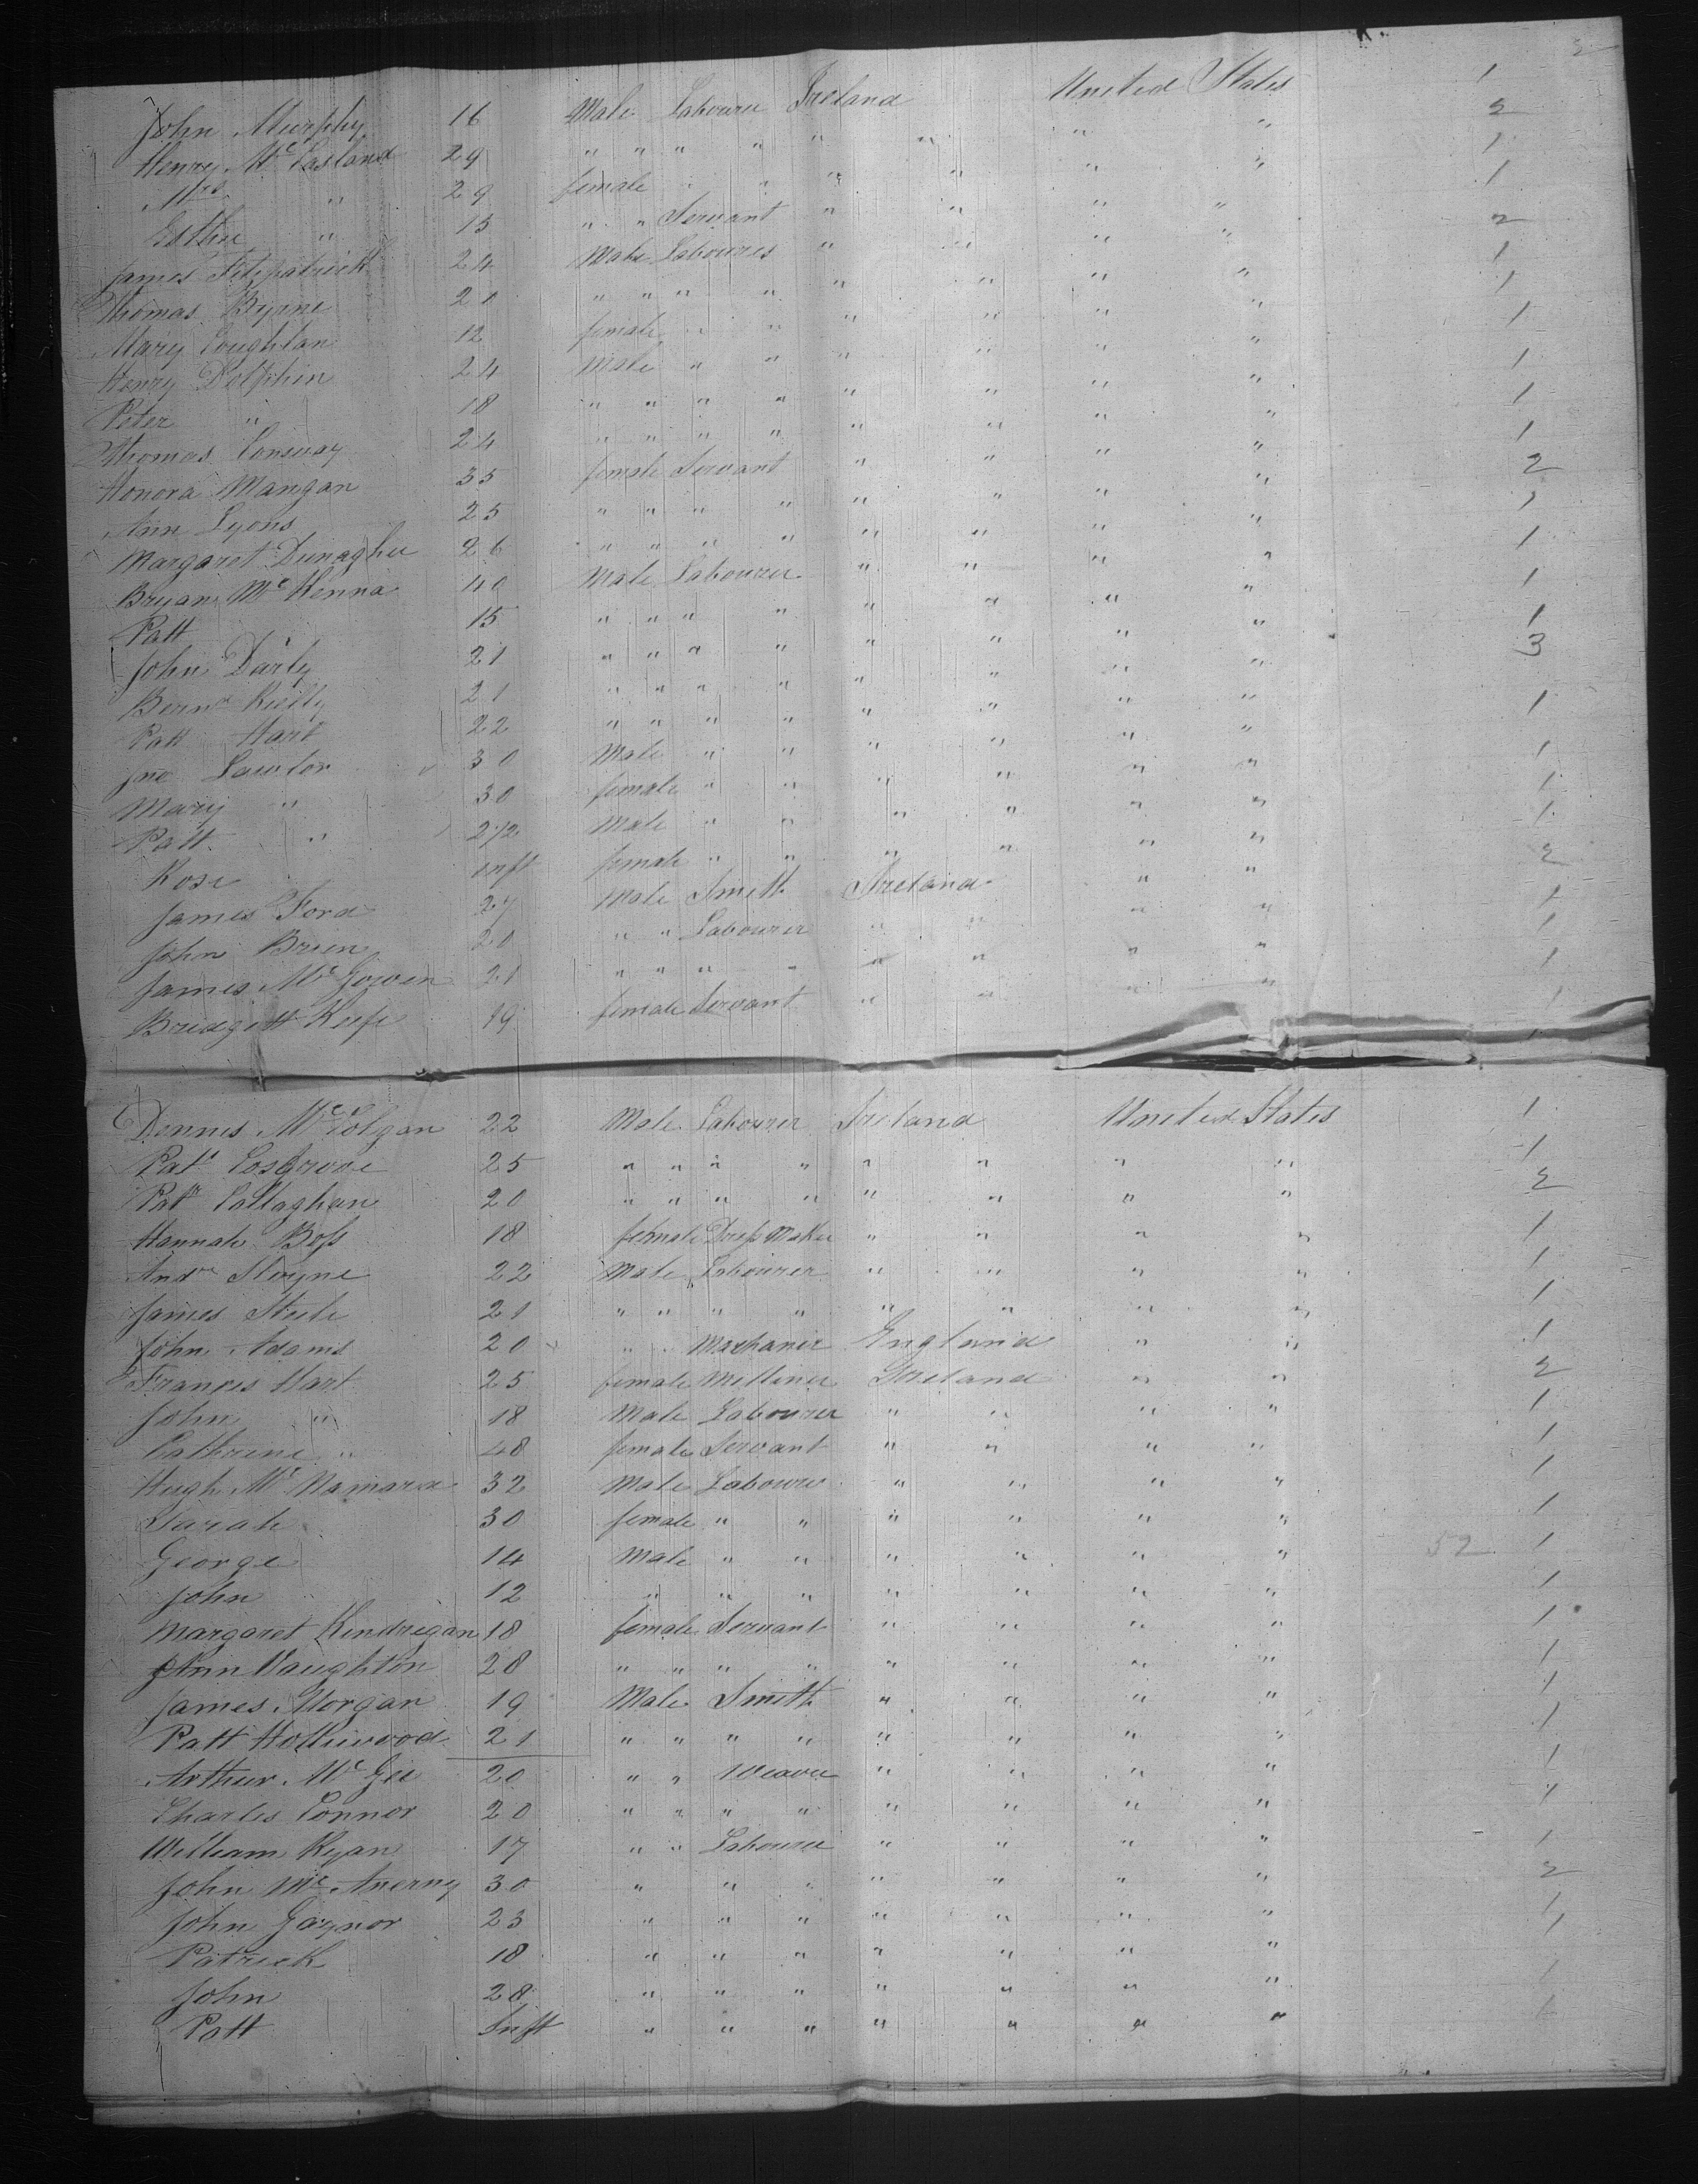 John Murphy 16 Male Labourer Ireland United States 1
Henry Mc Casland 29 " " " " " " " " 2
Mrs " 29 female " " " " " " 1
Esther " 15 " " Servant " " " " 1
James Fitzpatrick 24 Male Labourer " " " " 2
Thomas Byrne 20 " " " " " " " " 1
Mary Coughlan 12 female " " " " " " 1
Henry Dolphin 24 Male " " " " " " 1
Peter " 18 " " " " " " " " 1
Thomas Conway 24 " " " " " " " " 1
Honora Mangan 35 female Servant " " " " 1
Ann Lyons 25 " " " " " " " " 2
Margaret Dunaghu 26 " " " " " " " " 1
Bryan Mc Kenna 40 Male Labourer " " " " 1
Patt 15 " " " " " " " " 1
John Darly 21 " " " " " " " " 1
Bernd Kielly 21 " " " " " " " " 3
Patt Hart 22 " " " " " " " " 1
Jno Lawlor 30 Male " " " " " " 1
Mary " 30 female " " " " " " 1
Patt " 2 1/2 Male " " " " " " 1
Rose inft female " " " " " " 2
James Ford 27 Male Smith Ireland " " 1
John Brien 20 " " Labourer " " " " 1
James Mc Gowen 21 " " " " " " " " 1
Bridgett Keefe 19 female Servant " " " " 1
1
Dennis Mc Colgan 22 Male Labourer Ireland United States 1
Patk Cosgrove 25 " " " " " " " " 1
Patk Callaghan 20 " " " " " " " " 2
Hannah Boss 18 female Dress Maker " " " " 1
Andw Sloyne 22 Male Labourer " " " " 1
James Steele 21 " " " " " " " " 1
John Adams 20 " " Mechanic England " " 1
Frances Hart 25 female Milliner Ireland " " 2
John " 18 Male Labourer " " " " 1
Cathrine " 48 female Servant " " " " 1
Hugh Mc Namara 32 Male Labourer " " " " 1
Sarah 30 female " " " " " " 1
George 14 Male " " " " " " 52 1
John 12 " " " " " " " 1
Margaret Kendrigan 18 female Servant " " " " 1
Ann Naughton 28 " " " " " " " " 1
James Morgan 19 Male Smith " " " " 1
Patt Holliwood 21 " " " " " " " " 1
Arthur Mc Gee 20 " " Weaver " " " " 1
Charles Connor 20 " " " " " " " " 1
William Ryan 17 " " Labourer " " " " 1
John Mc Anerny 30 " " " " " " " 2
John Gaynor 23 " " " " " " " 1
Patrick 18 " " " " " " " 1
John 28 " " " " " " " 1
Patt Inft " " " " " " " 1